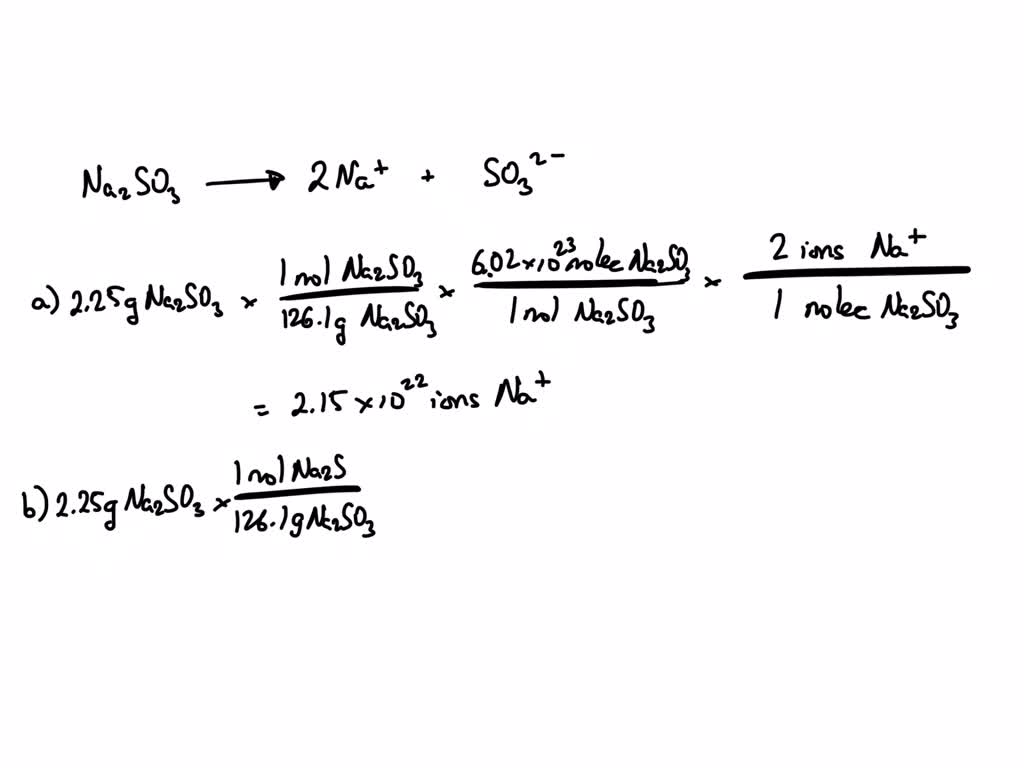 Na₂SO₃ → 2Na⁺ + SO₃²⁻
a) 2.25g Na₂SO₃ × 1 mol Na₂SO₃ / 126.1g Na₂SO₃ × 6.02×10²³ molec Na₂SO₃ / 1 mol Na₂SO₃ × 2 ions Na⁺ / 1 molec Na₂SO₃
= 2.15 ×10²² ions Na⁺
b) 2.25g Na₂SO₃ × 1 mol Na₂S / 126.1g Na₂SO₃